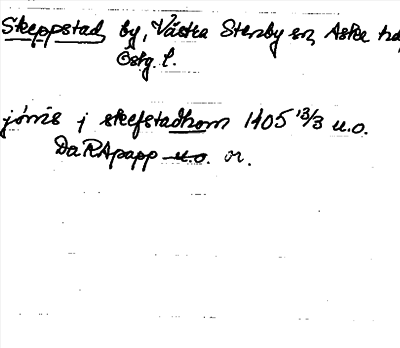 Skeppstad by, Västra Stenby sn, Aska hd
Östg. l.
jönis j skefstadhom 1405 13/3 u.o.
DaRApapp u.o. or.